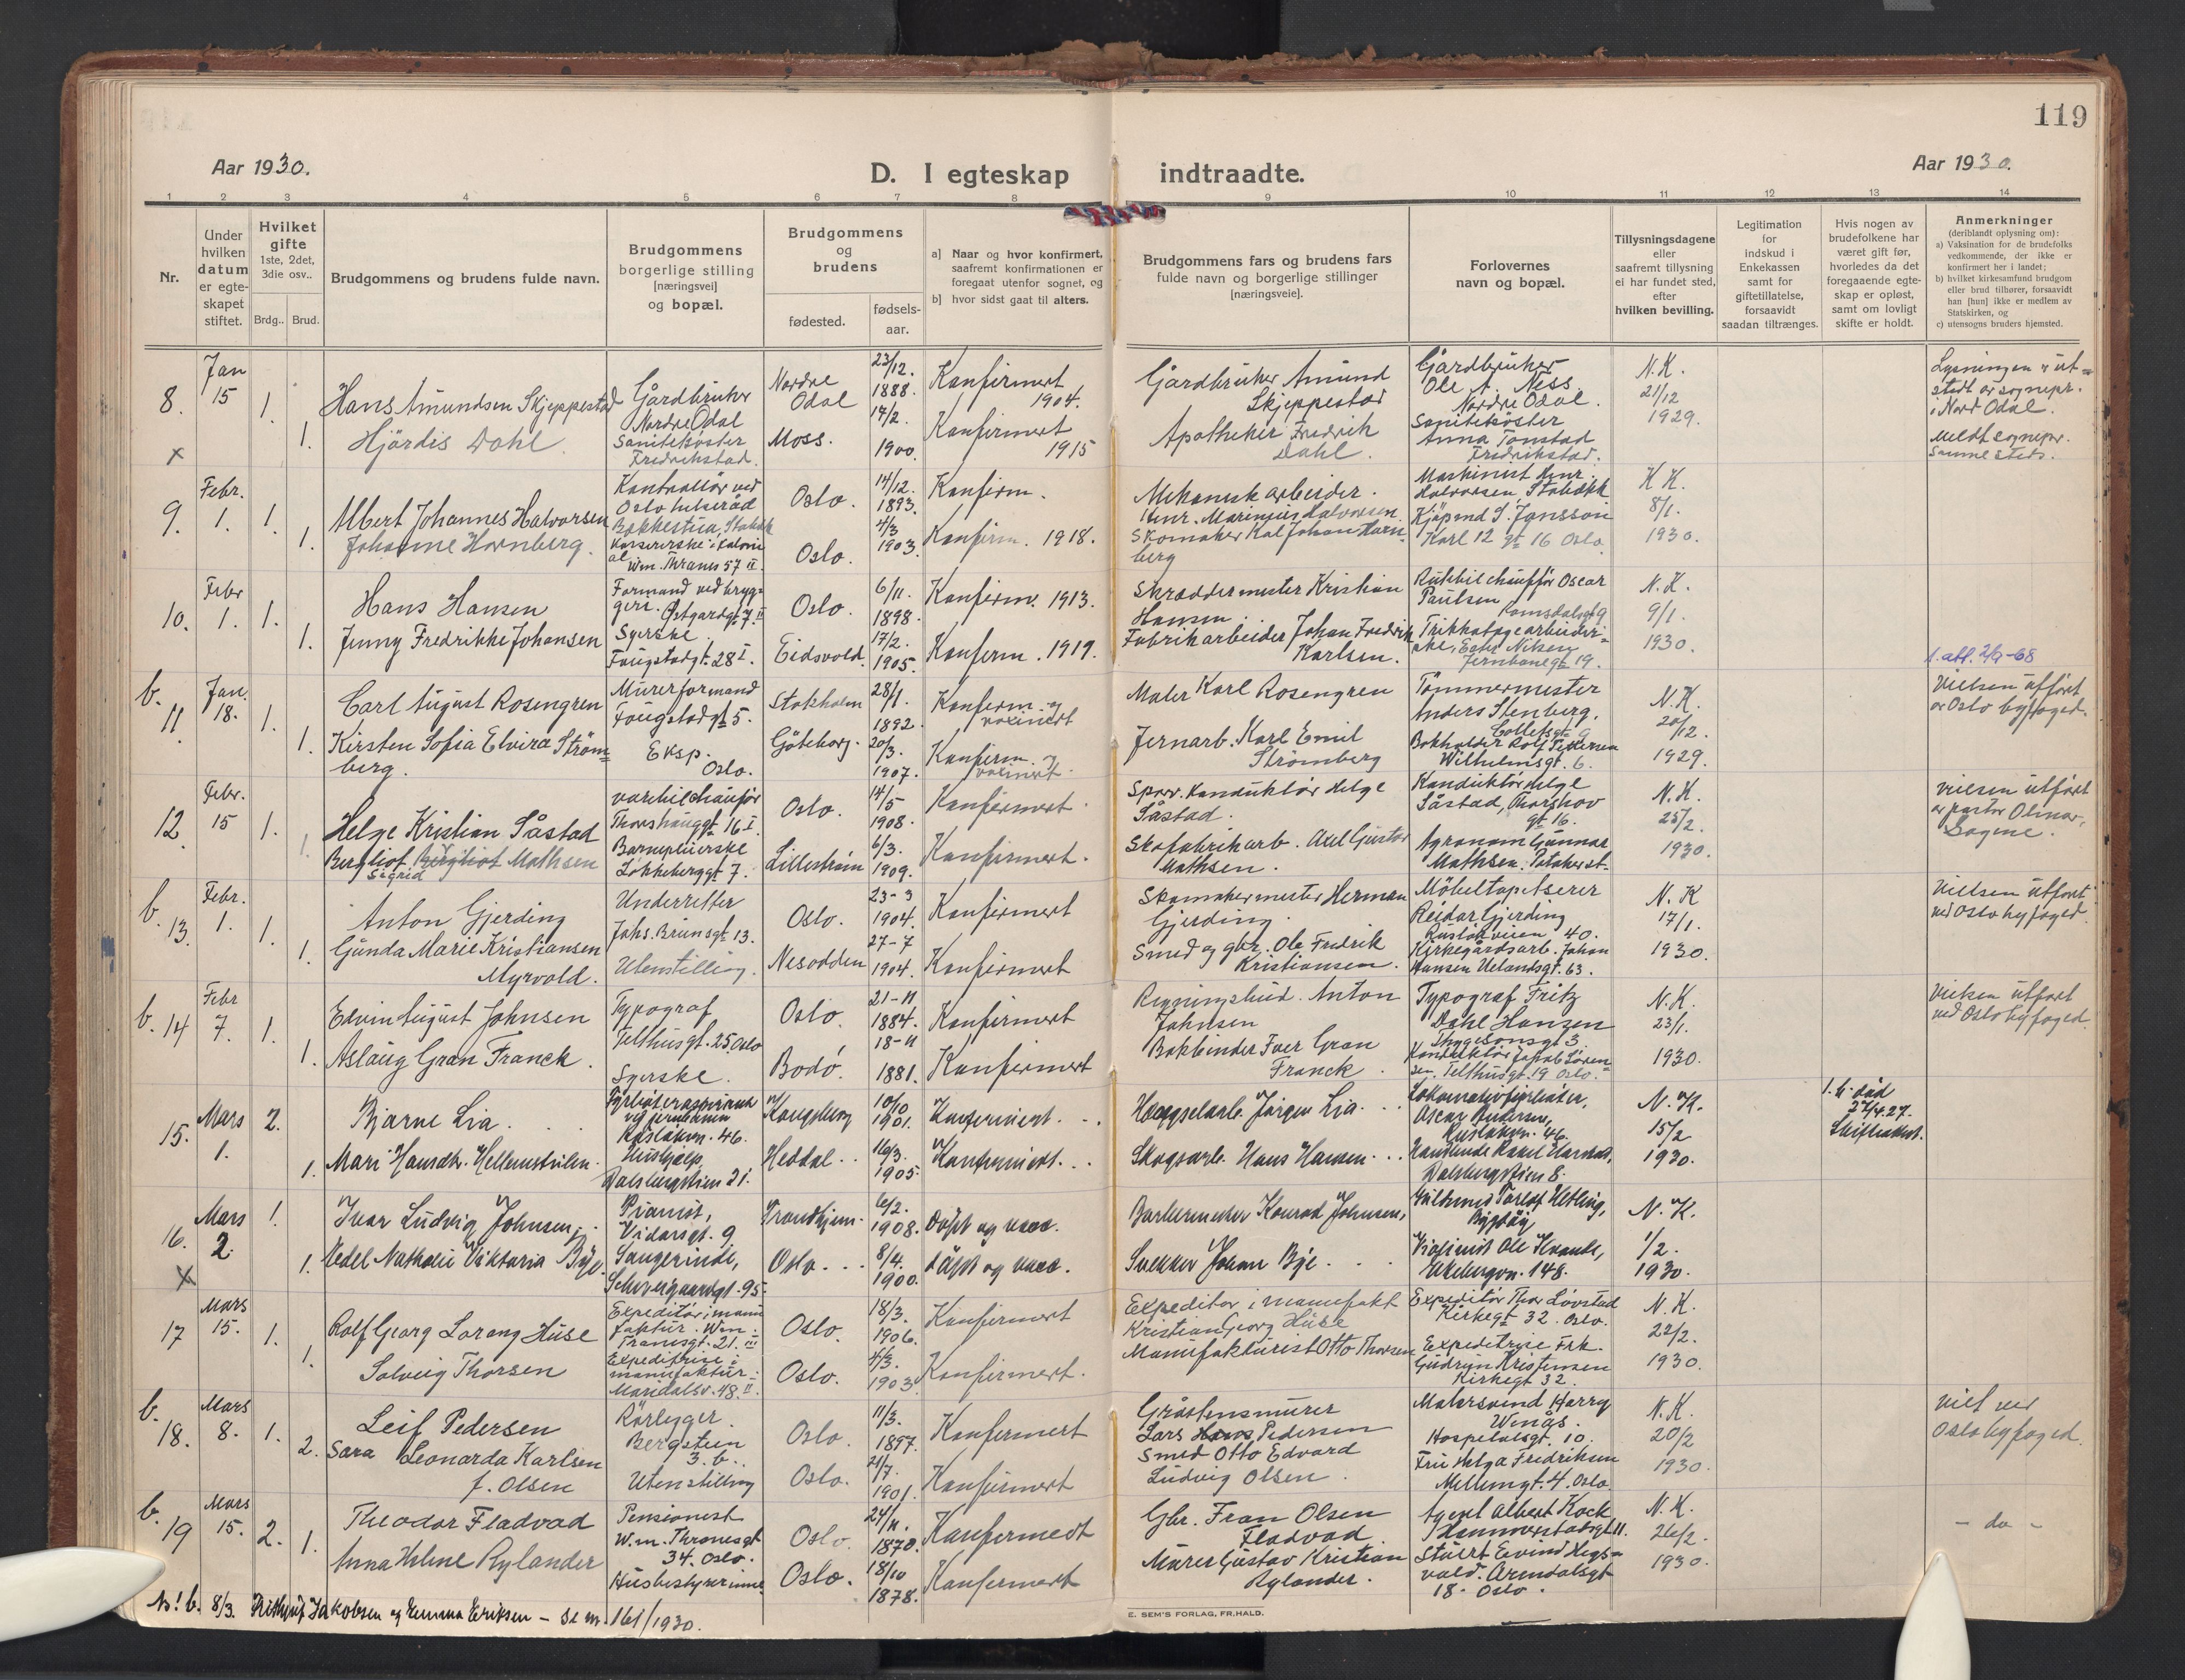 119
Aar 1930.
D. I egteskap indtraadte.
Aar 1930.
1 2 3 4 5 6 7 8 9 10 11 12 13 14
Nr.
Under hvilken datum er egte- skapet stiftet.
Hvilket gifte 1ste, 2det, 3die osv..
Brdg.. Brud.
Brudgommens og brudens fulde navn.
Brudgommens borgerlige stilling [næringsvei] og bopæl.
Brudgommens og brudens
fødested.
fødsels- aar.
a] Naar og hvor konfirmert, saafremt konfirmationen er foregaat utenfor sognet, og
b] hvor sidst gaat til alters.
Brudgommens fars og brudens fars fulde navn og borgerlige stillinger [næringsveie].
Forlovernes navn og bopæl.
Tillysningsdagene eller saafremt tillysning ei har fundet sted, efter hvilken bevilling.
Legitimation for indskud i Enkekassen samt for giftetillatelse, forsaavidt saadan tiltrænges.
Hvis nogen av brudefolkene har været gift før, hvorledes da det foregaaende egte- skap er opløst, samt om lovligt skifte er holdt.
Anmerkninger (deriblandt oplysning om):
a) Vaksination for de brudefolks vedkommende, der ikke er konfirmert her i landet;
b) hvilket kirkesamfund brudgom eller brud tilhører, forsaavidt han [hun] ikke er medlem av Statskirken, og
c) utensogns bruders hjemsted.
8. Jan 15 1. Hans Amundsen Skjeppestad Gårdbruker Nordre Odal Nordre Odal 23/12. 1888. Konfirmert 1904. Gårdbruker Amund Skjeppestad Gårdbruker Ole A. Ness Nordre Odal. N.K. 21/12 1929.
Lysningen ut- stedt av sognepr. i Nord Odal. Meldt sognepr. samme sted.
x 1. Hjördis Dahl. Sanitetsöster Fredrikstad. Moss. 14/2. 1900. Konfirmert 1915 Apotheker Fredrik Dahl. Sanitetsöster Anna Tonstad Fredrikstad.
9. Febr. 1. 1. Albert Johannes Halvorsen Kontrollör ved Oslo helseråd Oslo. 14/12. 1893. Konfirm. Mekanisk arbeider. Henr. Marinius Halvorsen Maskinist Henr. Halvorsen, Stabekk K K. 8/1. 1930.
1. Johanne Hornberg. Oslo. 4/3 1903. Konfirm. 1918. Skomaker Karl Johan Horn- berg Kjöpmd S. Jansson Karl 12 gt 16 Oslo
10. Febr 1. 1. Hans Hansen Formand ved bryg- geri. Östgardgt 7 II Oslo. 6/11. 1898. Konfirm. 1913. Skræddermester Kristian Hansen. Rutebilchaufför Oscar Paulsen Romsdalsgt 9 N.K. 9/1. 1930.
1. Jenny Fredrikke Johansen Syerske Fougstadgt. 28 I. Eidsvold. 17/2. 1905. Konfirm. 1919. Fabrikarbeider Johan Fredrik Karlsen. Jernbanegt 19.
b. 11. Jan. 18. 1. Carl August Rosengren Murerformand Fougstadgt 5. Stokholm 28/1. 1892. Konfirm. og vaxinert Maler Karl Rosengren Tömmermester Anders Stenberg, Colletsgt 9 N.K. 20/12. 1929.
1. att. 2/9-68
Vielsen utfört av Oslo byfoged.
1. Kirsten Sofia Elvira Ström- berg. Eksp. Oslo. Göteborg. 20/3. 1907. Konfirm. og vaxinert. Jernarb. Karl Emil Strömberg Bokholder Rolf Pettersen Wilhelmsgt. 6.
12. Febr. 15 1. Helge Kristian Såstad Varebilchauför Thorshauggt 16 I Oslo. 14/5 1908. Konfirmert. Sporv. Konduktör Helge Såstad. Konduktör Helge Såstad, Thorshov gt 16. N.K. 25/2. 1930.
Vielsen utfört av pastor Olmar, Sagene.
1 Bergliot Sigrid Mathsen Barnepleierske Løkkeberggt 7. Lilleström 6/3. 1909. Konfirmert. Skofabrikarb. Axel Gustav Mathsen. Agronom Gunnar Mathsen.
b. 13. Febr. 1. 1. Anton Gjerding Underretter Johs. Brunsgt 13. Oslo. 23-3 1904. Konfirmert Skomakermester Herman Gjerding. Möbeltapetserer Reidar Gjerding Ruslökveien 40. N.K 17/1. 1930.
Vielsen utfört ved Oslo byfoged.
1. Gunda Marie Kristiansen Myrvold. Utenstilling. Nesodden 27-7 1904. Konfirmert Smed og gbr. Ole Fredrik Kristiansen. Kirkegårdsarb. Johan Hansen Uelandsgt. 63.
b. 14 Febr 7. 1. Edvin August Johnsen Typograf Telthusgt. 25 Oslo Oslo. 21-11 1884. Konfirmert Regningsbud. Anton Johnsen Typograf Fritz Dahl Hansen Thygesonsgt 3. N.K. 23/1. 1930.
Vielsen utfört ved Oslo byfoged.
1. Aslaug Gran Franck. Syerske. Bodö. 18-11 1881. Konfirmert Bokbinder Iver Gran Franck. Konduktör Jakob Sören- sen. Telthusgt. 19 Oslo.
15. Mars 1. 2. Bjarne Lia. Ruslökvn. 46. Kongsberg 10/10 1901. Konfirmert. Jörgen Lia. Oscar Andersen, Ruslökvn. 46. N.K. 15/2 1930.
1. h. död 27/4.27. Skifteattest.
1. Mari Hansdtr. Hellemstvilen. Hushjelp Dalsbergstien 21. Heddal. 16/3. 1905. Konfirmert. Skogsarb. Hans Hansen. Dalsbergstien 8.
16. Mars 2. 1. Ivar Ludvig Johnsen, Pianist, Vidarsgt. 9 Trondhjem. 6/2. 1908. Döpt og vacc. Barbermester Konrad Johnsen, Bygdöy N.K. 1/2. 1930.
x 1. Vedel Nathalie Viktoria Bye. Sangerinde, Schweigaardsgt. 95 Oslo. 8/4. 1900. Döpt og vacc. Snekker Johan Bye. Violinist Ole Ekebergvn. 148.
17 Mars 15. 1. Rolf Georg Lorang Huse Expeditör i manu faktur. Wm. Tranesgt. 21. III Oslo. 18/3. 1906. Konfirmert Expeditör i manufakt Kristian Georg Huse Expeditör Thor Lövstad Kirkegt 32. Oslo. N.K. 22/2. 1930.
1. Solveig Thorsen Expeditrise i manufaktur. Maridalsv. 48 II. Oslo. 4/3. 1903 Konfirmert. Manufakturist Otto Thorsen Expeditrise Frk. Gudrun Kristensen Kirkegt 32.
b. 18. Mars 8. 1. Leif Pedersen Rörlegger. Bergstien 3.b.. Oslo. 11/3. 1897. Konfirmert Gråstensmurer Lars Hans Pedersen Malersvend Harry Winås. Hospitalsgt. 10. N.K. 20/2 1930.
viet ved Oslo byfoged.
2. Sara Leonarda Karlsen f. Olsen Utenstilling Oslo. 21/7. 1901. Konfirmert Smed Otto Edvard Ludvig Olsen. Fru Helga Fredriksen Mellemgt. 4. Oslo
b. 19 Mars 15. 2. Theodor Fladvad Pensionist W.m. Thranesgt 34. Oslo. Oslo. 24/11. 1870. Konfirmert Gbr. Fran Olsen Fladvad Agent Albert Kock N.K. 26/2. 1930.
- do -
1. Anna Helene Rylander Husbestyrerinne. Oslo. 18/10 1878. Konfirmert Murer Gustav Kristian Rylander. Stuert Eivind Hegs- vold. Arendalsgt 18. Oslo.
N! b. 8/3. Fridtjof Jakobsen og Emma Eriksen - se nr. 161/1930.
E. SEM'S FORLAG, FR.HALD.